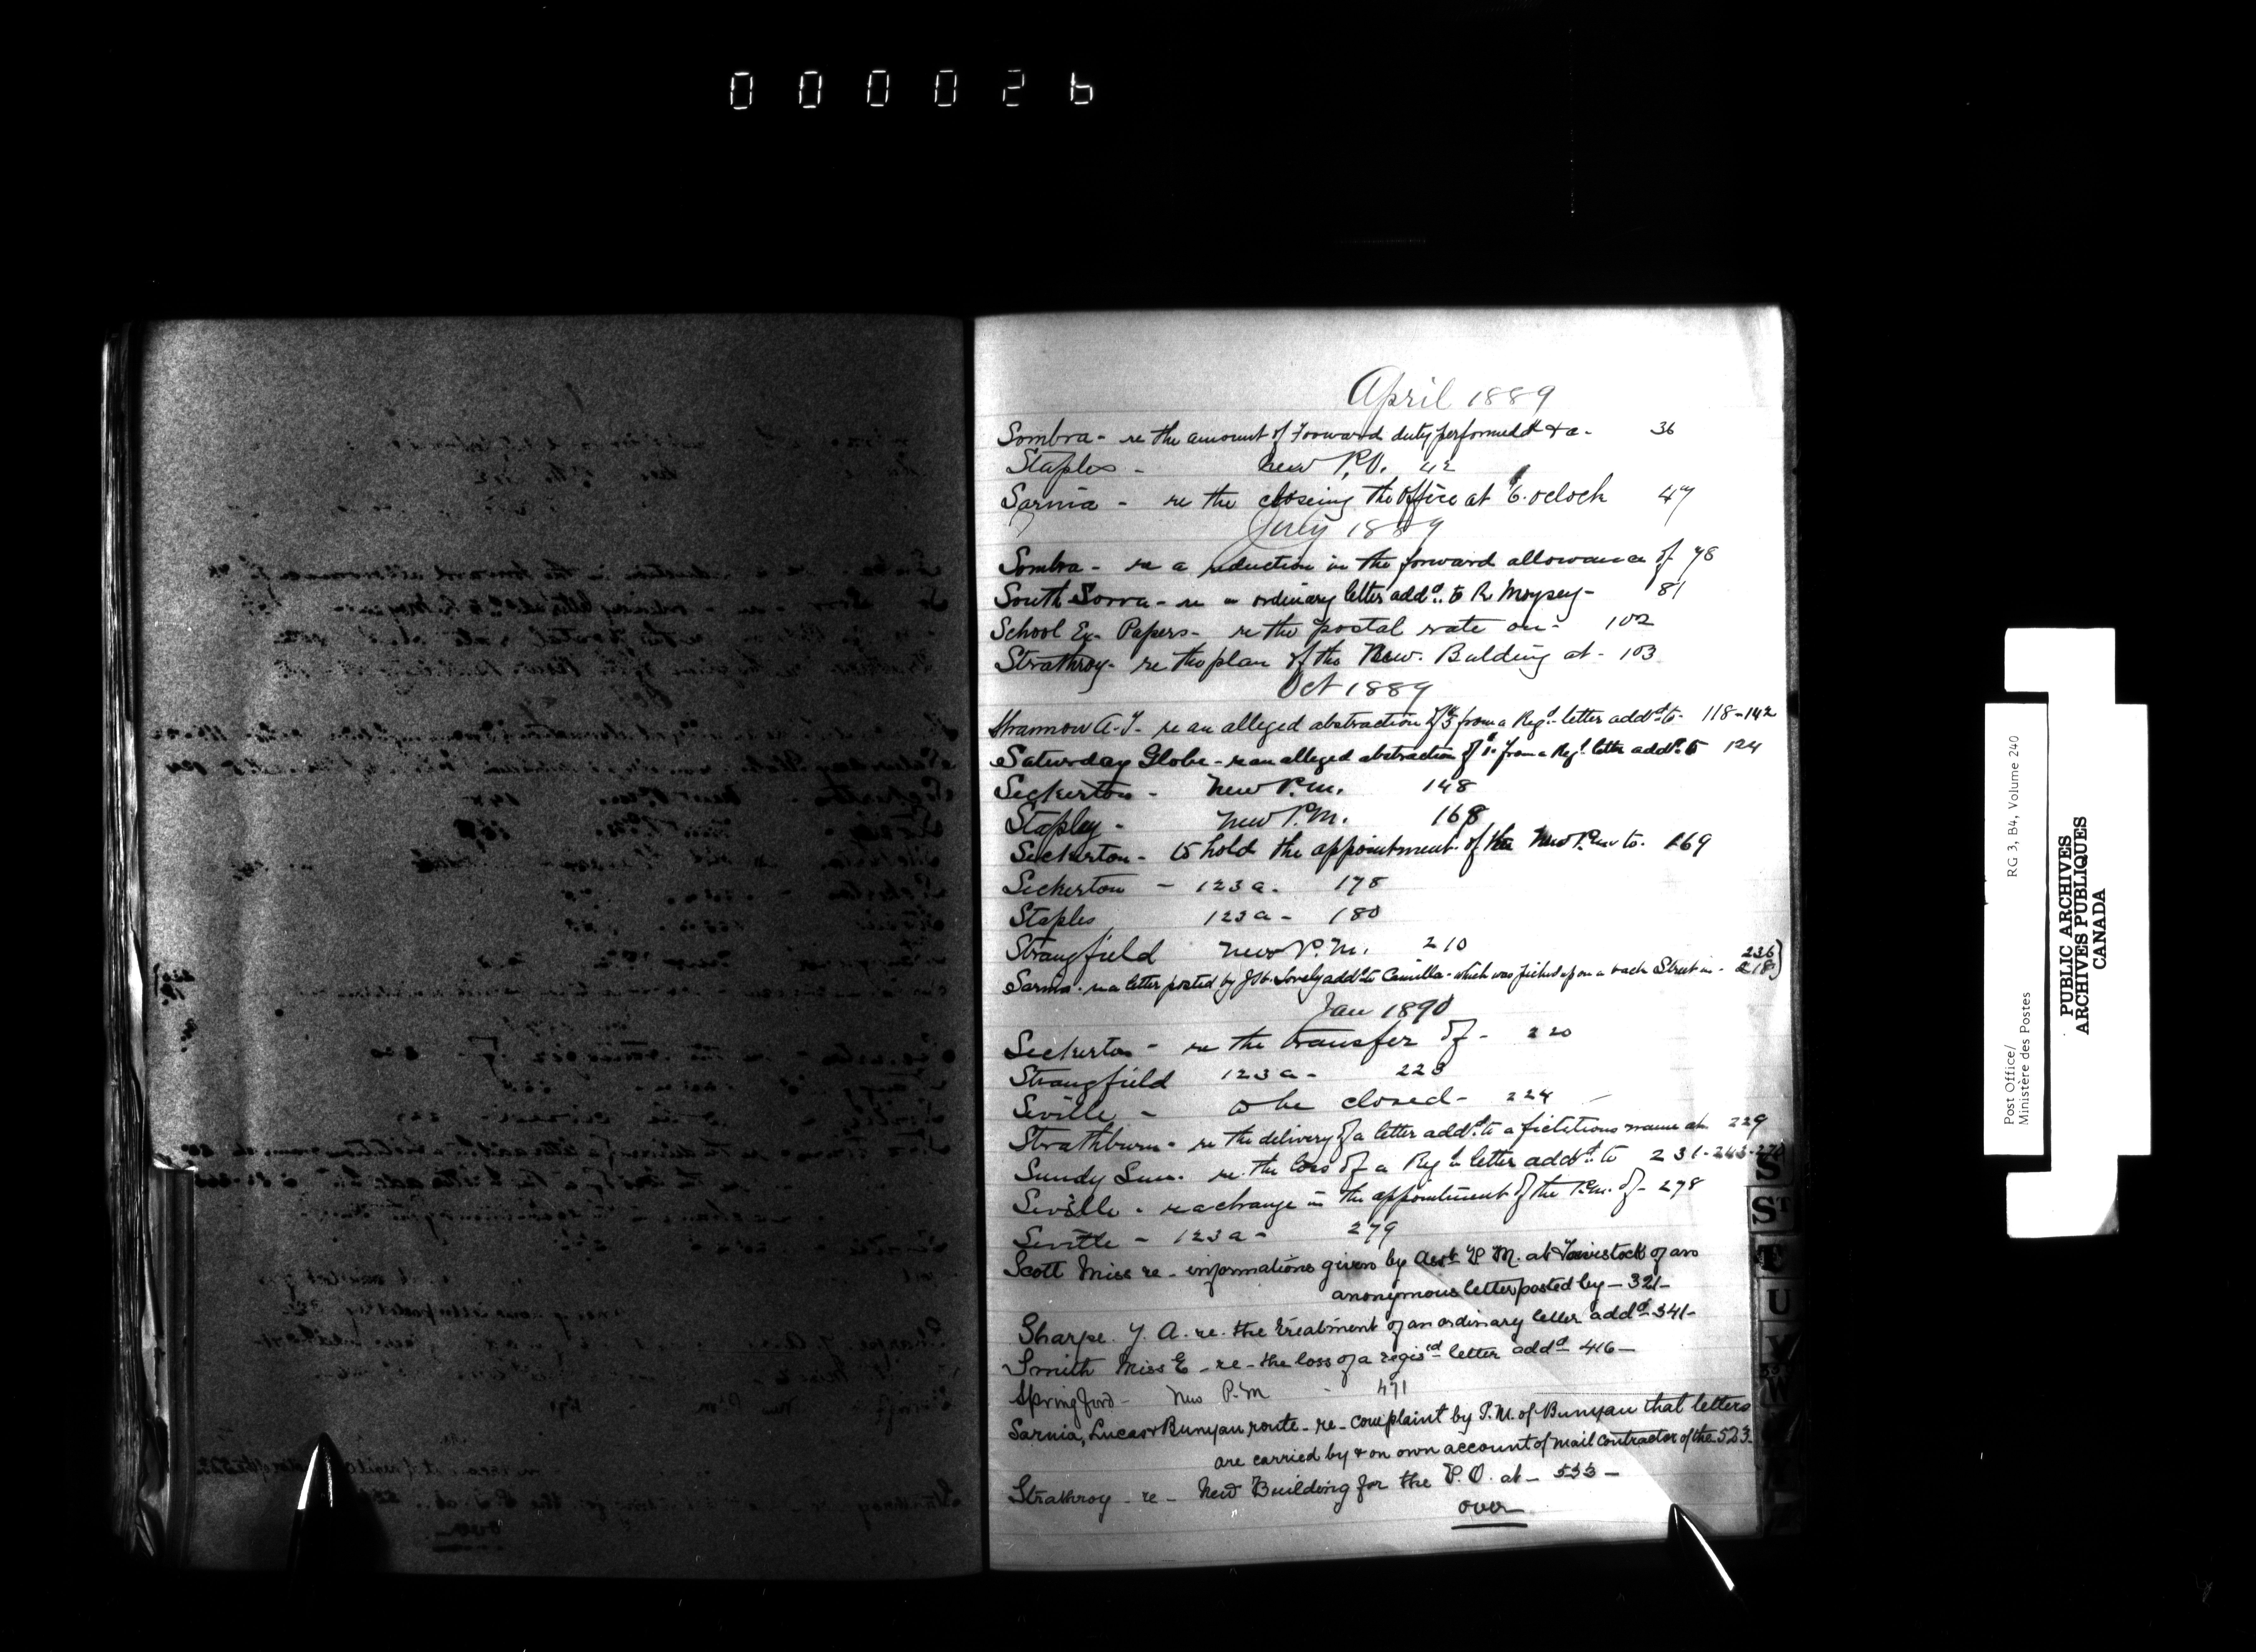 000026
April 1889
Sombra - re the amount of Forward duty performed &a - 36
Staples - New P.O. 42
Sarnia - re the closeing the Office at 6. oclock 47
July 1889
Sombra - re a reduction in the forward allowance of 78
South Zorra - re an ordinary letter addd. to R. Moysey - 81
School Ex. Papers - re the postal rate on - 102
Strathroy - re the plan of the New. Bulding at - 103
Oct 1889
A. Y. - re an alleged abstraction of $5 from a Regd. letter addd. to - 118-142
Saturday Globe - re an alleged abstraction of $1. from a Regd. letter addd. to 124
Seckerton - New P.M. 148
Stapley - New P.M. 168
Seckerton - to hold the appointment of the New P.M. to. 169
Seckerton - 123a. 178
Staples 123a - 180
Strangfield New P.M. 210
Sarnia - re a letter posted by J. W. Lovely addd. to Camilla - which was picked up on a back Street in - 236 218
Jan 1890
Seckerton - re the transfer of - 220
Strangfield 123a - 223
Seville - to be closed - 224
Strathburn - re the delivery of a letter addd. to a fictitious name at 229
Sundy Sun. re. the loss of a Regd. letter addd. to 231-243-270
Seville - re a change in the appointment of the P.M. of - 278
Seville - 123a - 279
Scott Miss re - informations given by Asst P.M. at Tavistock of an
anonymous letter posted by - 321 -
Sharpe. Y. A. re. the treatment of an ordinary letter addd - 341 -
Smith Miss E - re - the loss of a regisd letter addd - 416 -
Springford - New P.M - 471
Sarnia, Lucas & Bunyan route - re - complaint by P.M. of Bunyan that letters
are carried by & on own account of mail contractor of the 523 -
Strathroy - re - New Building for the P.O. at - 533 -
over
S
ST
U
V
W
Post Office/
Ministère des Postes
RG 3, B4, Volume 240
PUBLIC ARCHIVES
ARCHIVES PUBLIQUES
CANADA